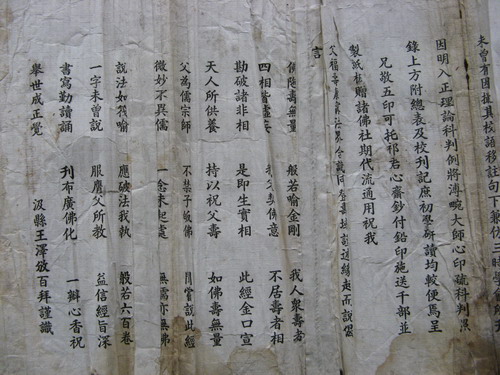 未曾有因擅具經語移註句下
因明入正理論科判例將溥畹大師心印疏科判
錄上方附總表及校刊記庶初學研讀均較便焉呈
兄敬五印可托祁君心齋鈔付鉛印施送千部並
製紙柱贈諸佛社期代流通用祝我
父福壽
言
佛陀壽無量 般若喻金剛 我人衆壽者
四相皆虛妄 契佛意 不居壽者相
勘破諸非相 是即生實相 此經金口宣
天人所供養 持以祝父壽 如佛壽無量
父為儒宗師 不禁子皈佛 嘗說此經
微妙不異儒 一念未起處 無儒亦無佛
說法如筏喻 應破法我執 般若六百卷
一字未曾說 服膺父所教 益信經旨深
書寫勤讀誦 刊布廣佛化 一瓣心香祝
舉世成正覺 汲縣王澤攽百拜謹識